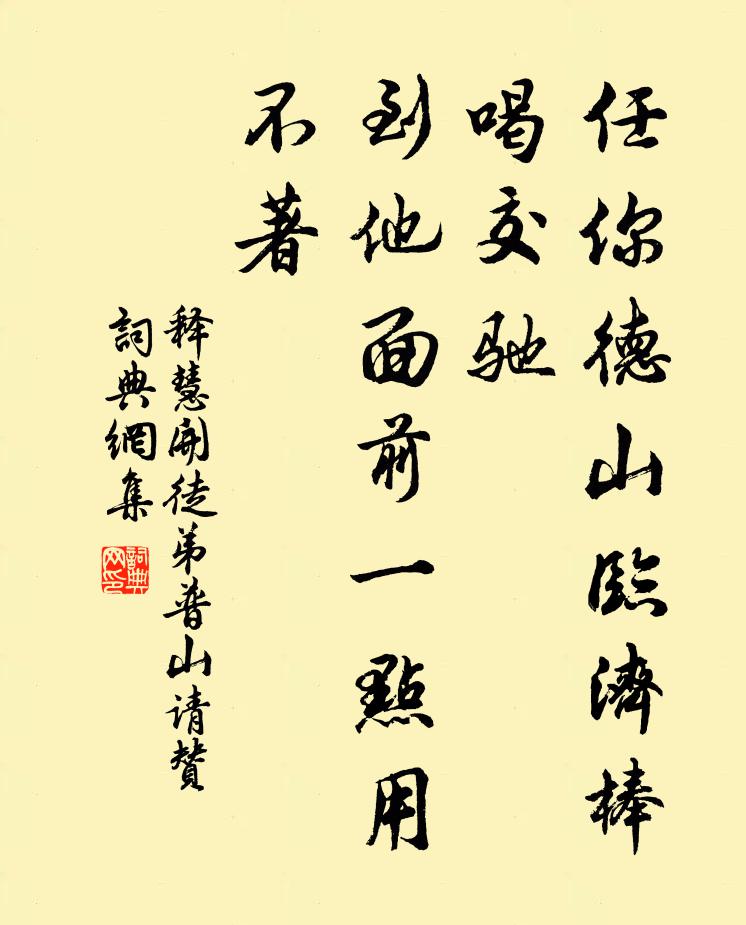 任你德山臨濟棒
喝交馳
到他面前一點用
不著
释慧開徒弟普山请贊
詞典網集
詞典网印